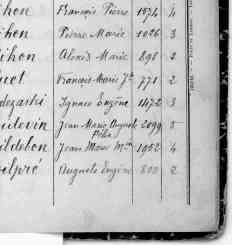 ihon François Pierre 1574 4
ihon Pierre Marie 1026 3
ihon Alexis Marie 898 2
uet François Marie Jh 771 2
Ignace Eugène 1472 3
udevin Jean Marie Auguste 2099 5
Félix
ildebon Jean Marie Mie 1952 4
elpré Auguste Eugène 800 2